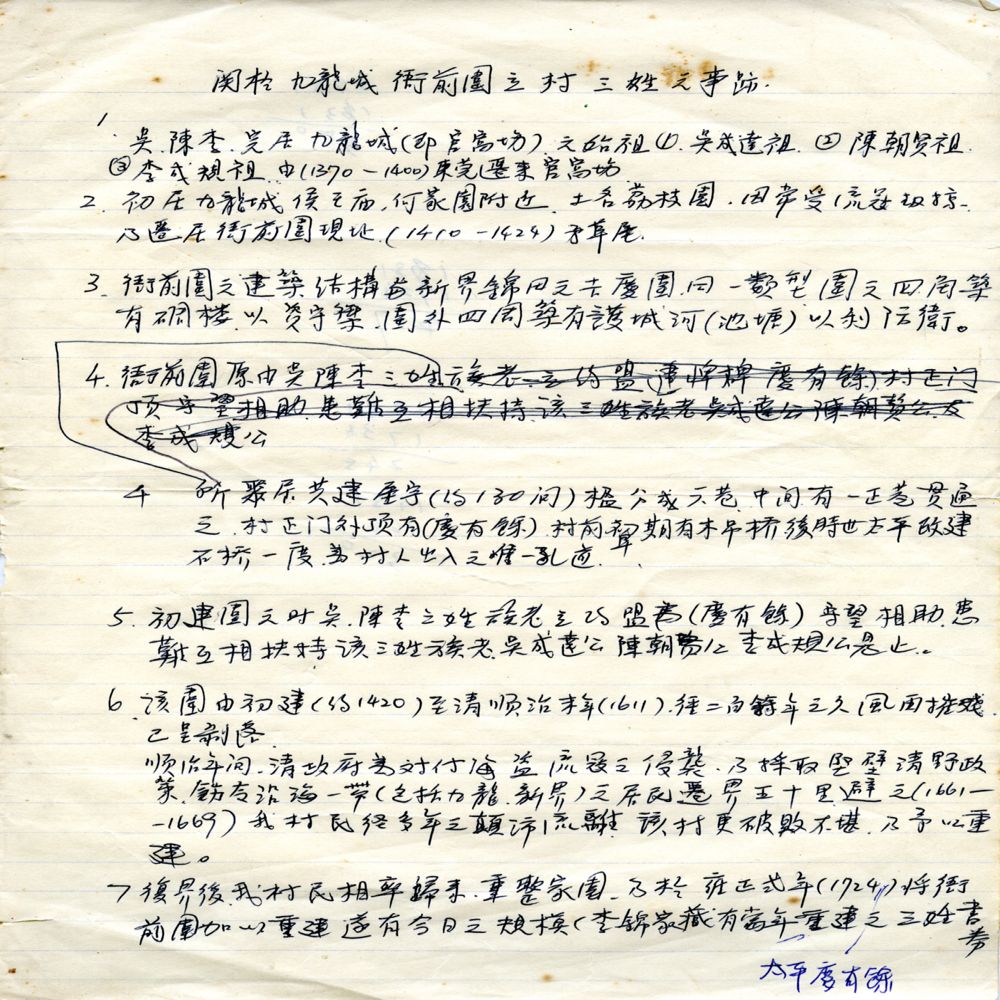 関於九龍城衙前圍立村三姓之事跡.
1. 吳.陳.李.定居九龍城(即官富場)之始祖①.吳成達祖.②陳朝賢祖.
③李成規祖.由(1370-1400)東莞遷來官富場
2. 初居九龍城侯王庙,何家園附近.土名荔枝園.因常受流寇劫掠.
乃遷居衙前圍現址.(1410-1424)
3. 衙前圍之建築结構与新界錦田之吉慶圍.同一類型圍之四角築
有碉楼.以資守.圍外四周築有護城河(池塘)以利防衛。
4. 衙前圍原由吳陳李三姓族老立约盟建牌 慶有餘)村正门
顶守望相助患難互相扶持該三姓族老吳成達公陳朝賢公及
李成規公
4 所聚居共建屋宇(约130间)Ꮟ分成六巷.中間有一正巷贯通
之.村正门外顶有(慶有餘).村前初期有木吊橋後時世太平改建
石桥一度.為村人出入之唯一孔道.
5. 初建圍之时吳.陳李三姓族老立约盟書(慶有餘)守望相助.患
難互相扶持該三姓族老.吳成達公陳朝賢公李成規公是止..
6. 該圍由初建(约1420)至清順治年(1611).経二百餘年之久風雨摧残.
已呈剥落.
順治年间.清政府為对付海盗流寇之侵襲.乃採取堅壁清野政
策.飭令沿海一帶(包括九龍.新界)之居民遷界五十里避之(1661-
-1669)我村民经多年之顛沛流離.該村更破敗不堪.乃予以重
建。
7 復界後.我村民相率歸来.重整家園.乃於雍正弍年(1724)将衙
前圍加以重建遂有今日之規模(李錦家藏有當年重建之三姓書
券
太平慶有餘